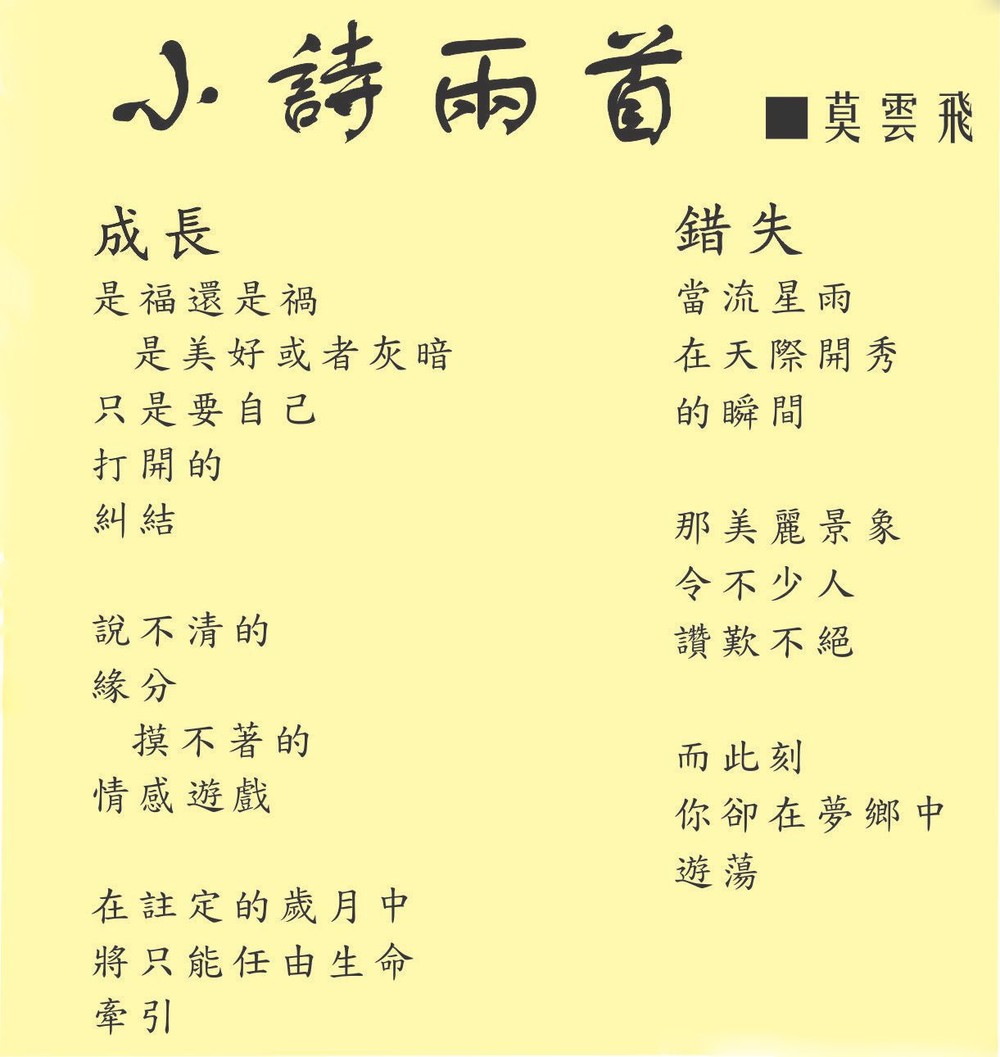 小詩兩首
■莫雲飛
成長
是福還是禍
是美好或者灰暗
只是要自己
打開的
糾結
說不清的
緣分
摸不著的
情感遊戲
在註定的歲月中
將只能任由生命
牽引
錯失
當流星雨
在天際開秀
的瞬間
那美麗景象
令不少人
讚歎不絕
而此刻
你卻在夢鄉中
遊蕩